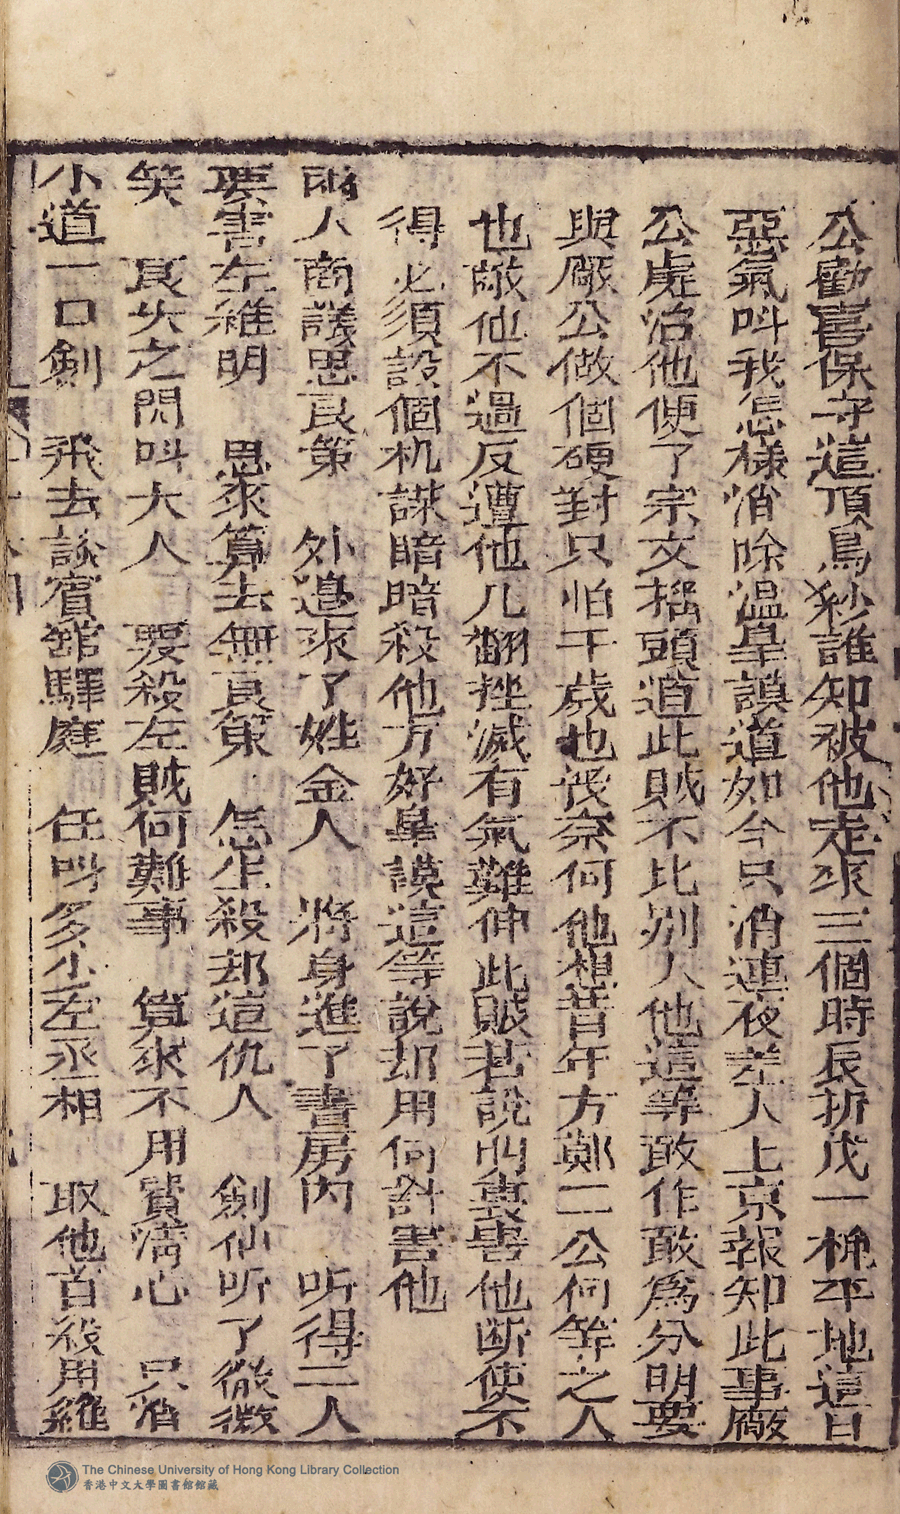 公勸喜保守這頂烏紗誰知被他走來三個時辰折戊一桅平地這日
惡氣叫我怎樣消除溫皇謨道如今只消連夜差人上京報知此事廠
公處治他便了宗文摇頭道此賊不比别人他這等敢作敢為分明要
與厰公做個硬對只怕千歲也没奈何他想昔年方鄭二公何等之人
也敵他不過反遭他几翻挫滅有氣難伸此賊若說明裏害他断使不
得必須設個机謀暗暗殺他方好皇謨這等說却用何計害他
兩人商議思良策 外邉來了姓金人 將身進了書房内 听得二人
要害左維明 思來算去無良策 怎生殺却這仇人 劍仙听了微微
笑 良久之間叫大人 要殺左賊何難事 算來不用費清心 只消
小道一口劍 飛去談賓舘驛庭 任叫多少左丞相 取他首級用難
The Chinese University of Hong Kong Library Collection
香港中文大學圖書館館藏